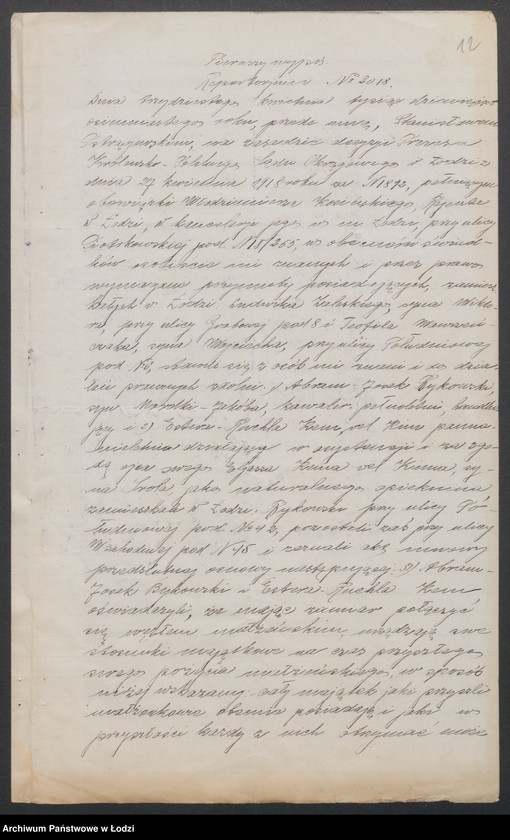 12
Pierwszy wypis.
Repertorjum № 2018.
Dnia trzydziestego kwietnia tysiąc dziewięćset
osiemnastego roku, przede mną, Stanisławem
na zasadzie decyzji Prezesa
Królewsko-Polskiego Sądu Okręgowego w Łodzi z
dnia 27 kwietnia 1918 roku za № 1892, pełniącym
obowiązki Włodzimierza Kosińskiego, Rejenta
w Łodzi, w kancelarji jego w m. Łodzi, przy ulicy
Piotrkowskiej pod № 265, w obecności świad-
ków osobiście mi znanych i przez prawo
wymagane przymioty posiadających, zamiesz-
kałych w Łodzi: Ludwika syna Wikto-
ra, przy ulicy pod 8 i Teofila Wawrzeń-
czaka, syna Wojciecha, przy ulicy Południowej
pod № stawili się z osób mi znani i do dzia-
łań prawnych zdolni: 1) Abram-Josek Bykowski,
syn Mordki-Jakóba, kawaler, pełnoletni, handlu-
jący i 2) Estera-Ruchla Kem, vel Kum panna
działająca w asystencji i za zgo-
dą ojca swego Kema vel Kuma, sy-
na jako naturalnego opiekuna
zamieszkali w Łodzi: Bykowski przy ulicy Po-
łudniowej pod № 42, pozostali zaś przy ulicy
Wschodniej pod № 45 i zeznali akt umowy
przedślubnej osnowy następującej: Abram-
Josek Bykowski i Estera-Ruchla Kem
oświadczyli, że mając zamiar połączyć
się węzłem małżeńskim, urządzają swe
stosunki majątkowe na czas przyszłego
swego pożycia małżeńskiego, w sposób
niżej wskazany: cały majątek jaki przyszli
małżonkowie obecnie posiadają i jaki w
przyszłości każdy z nich otrzymać może
Archiwum Państwowe w Łodzi